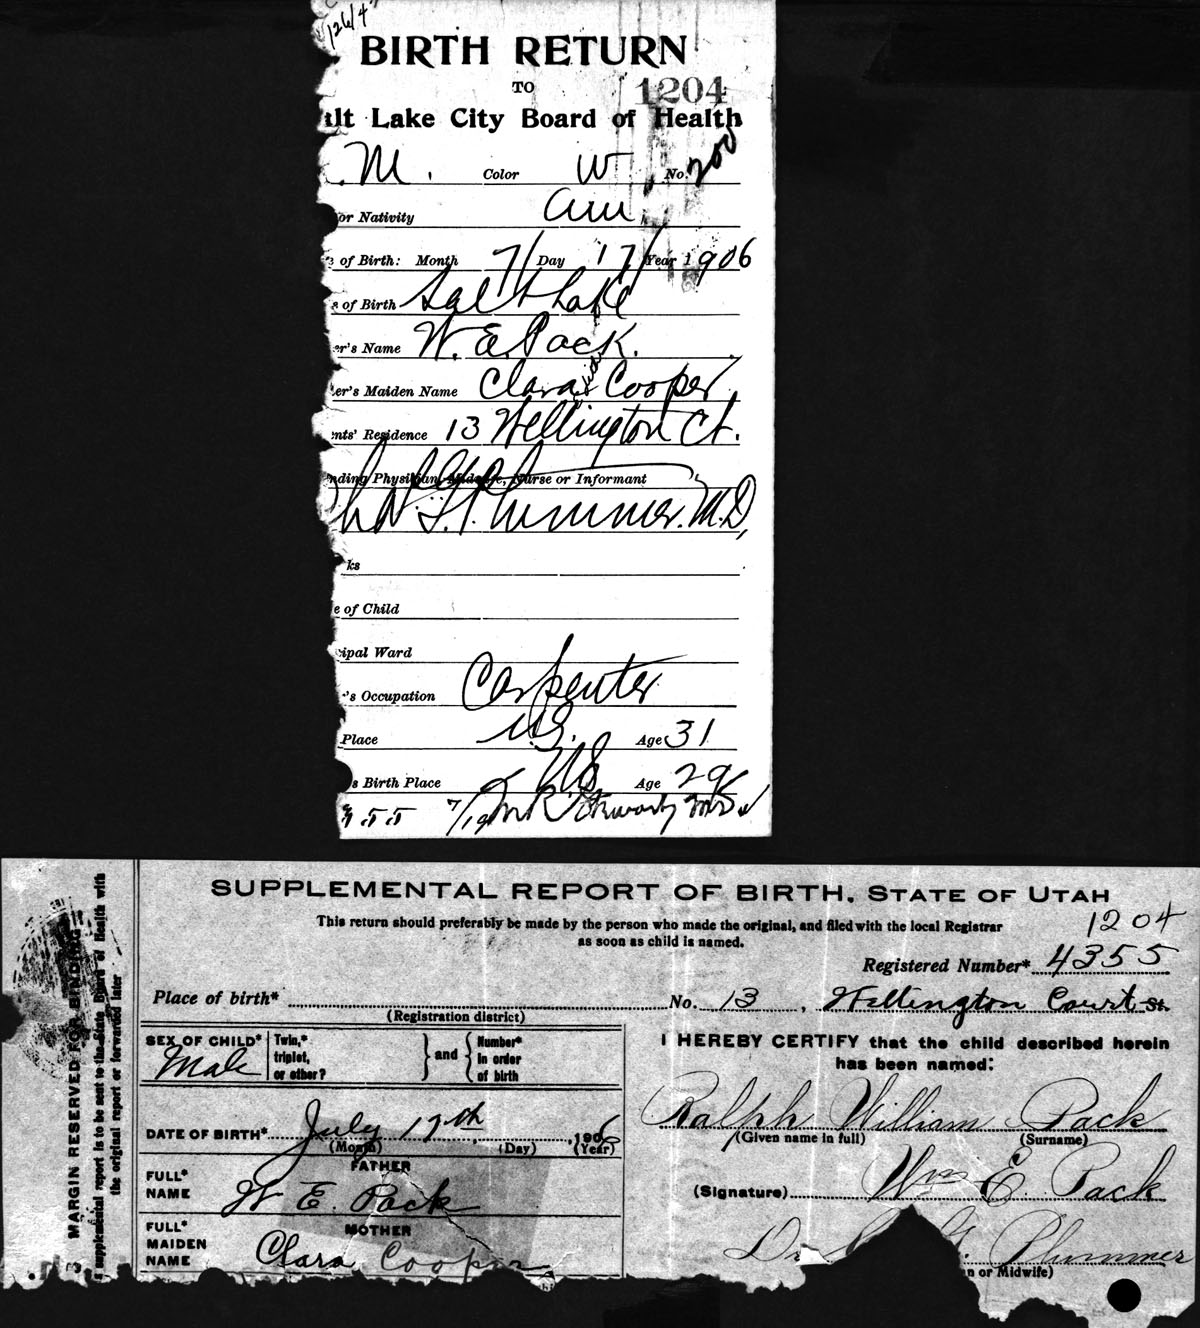 126/4
BIRTH RETURN
TO
1204
lt Lake City Board of Health
. M. Color W No. 200
or Nativity Am
of Birth: Month 7/ Day 17/ Year 1906
of Birth Salt Lake
er's Name W. E. Pack.
er's Maiden Name Clara Cooper
nts' Residence 13 Wellington Ct.
nding Physician, Midwife, Nurse or Informant
G. Plummer. M.D.
ks
e of Child
ipal Ward
's Occupation Carpenter
Place U.S. Age 31
s Birth Place US Age 29
355 7/19 M.D.
SUPPLEMENTAL REPORT OF BIRTH, STATE OF UTAH
This return should preferably be made by the person who made the original, and filed with the local Registrar
as soon as child is named.
1204
Registered Number* 4355
Place of birth* No. 13, Wellington Court St.
(Registration district)
SEX OF CHILD* Male
Twin,* triplet, or other?
and
Number* in order of birth
I HEREBY CERTIFY that the child described herein
has been named:
Ralph William Pack
(Given name in full) (Surname)
DATE OF BIRTH* July 17th, 1906
(Month) (Day) (Year)
FATHER
FULL* NAME W E. Pack
(Signature) Wm E. Pack
MOTHER
FULL* MAIDEN NAME Clara Cooper
Dr G. Plummer
n or Midwife)
MARGIN RESERVED FOR BINDING
supplemental report is to be sent to the State Board of Health with
the original report or forwarded later